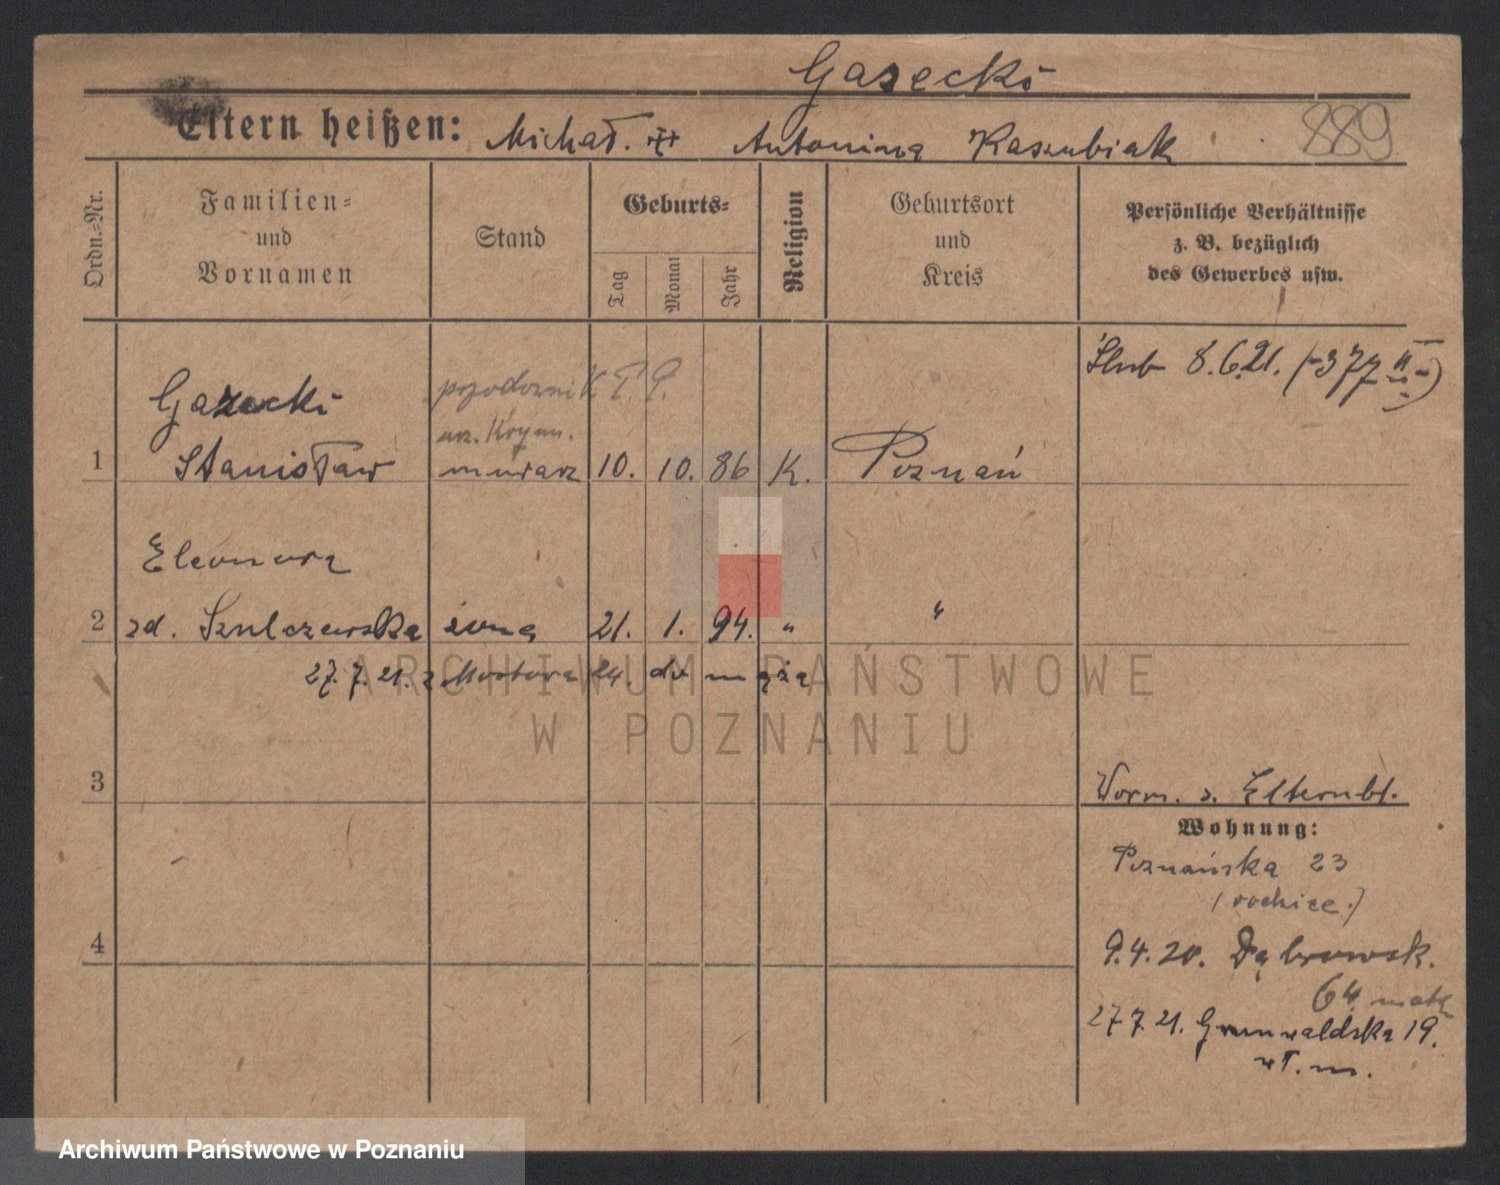 Gasecki
Eltern heißen: Michał. Antonina Kaszubiak 889
Ordn.-Nr.
Familien=
und
Vornamen
Stand
Geburts=
Tag
Monat
Jahr
Religion
Geburtsort
und
Kreis
Persönliche Verhältnisse
z. B. bezüglich
des Gewerbes usw.
Ślub 8.6.21. (-377 III
Gasecki
1 Stanisław murarz 10. 10. 86 K. Poznań
Eleonora
2 zd. Szulczewska żona 21. 1. 94. " "
27.7.21. z Mostowa 24. do męża
3
Worm. s. Elternbl.
Wohnung:
Poznańska 23
(rodzice.)
4
9.4.20. Dąbrowsk.
64 matk
27.7.21. Grunwaldska 19.
wł. m.
ARCHIWUM PAŃSTWOWE
W POZNANIU
Archiwum Państwowe w Poznaniu